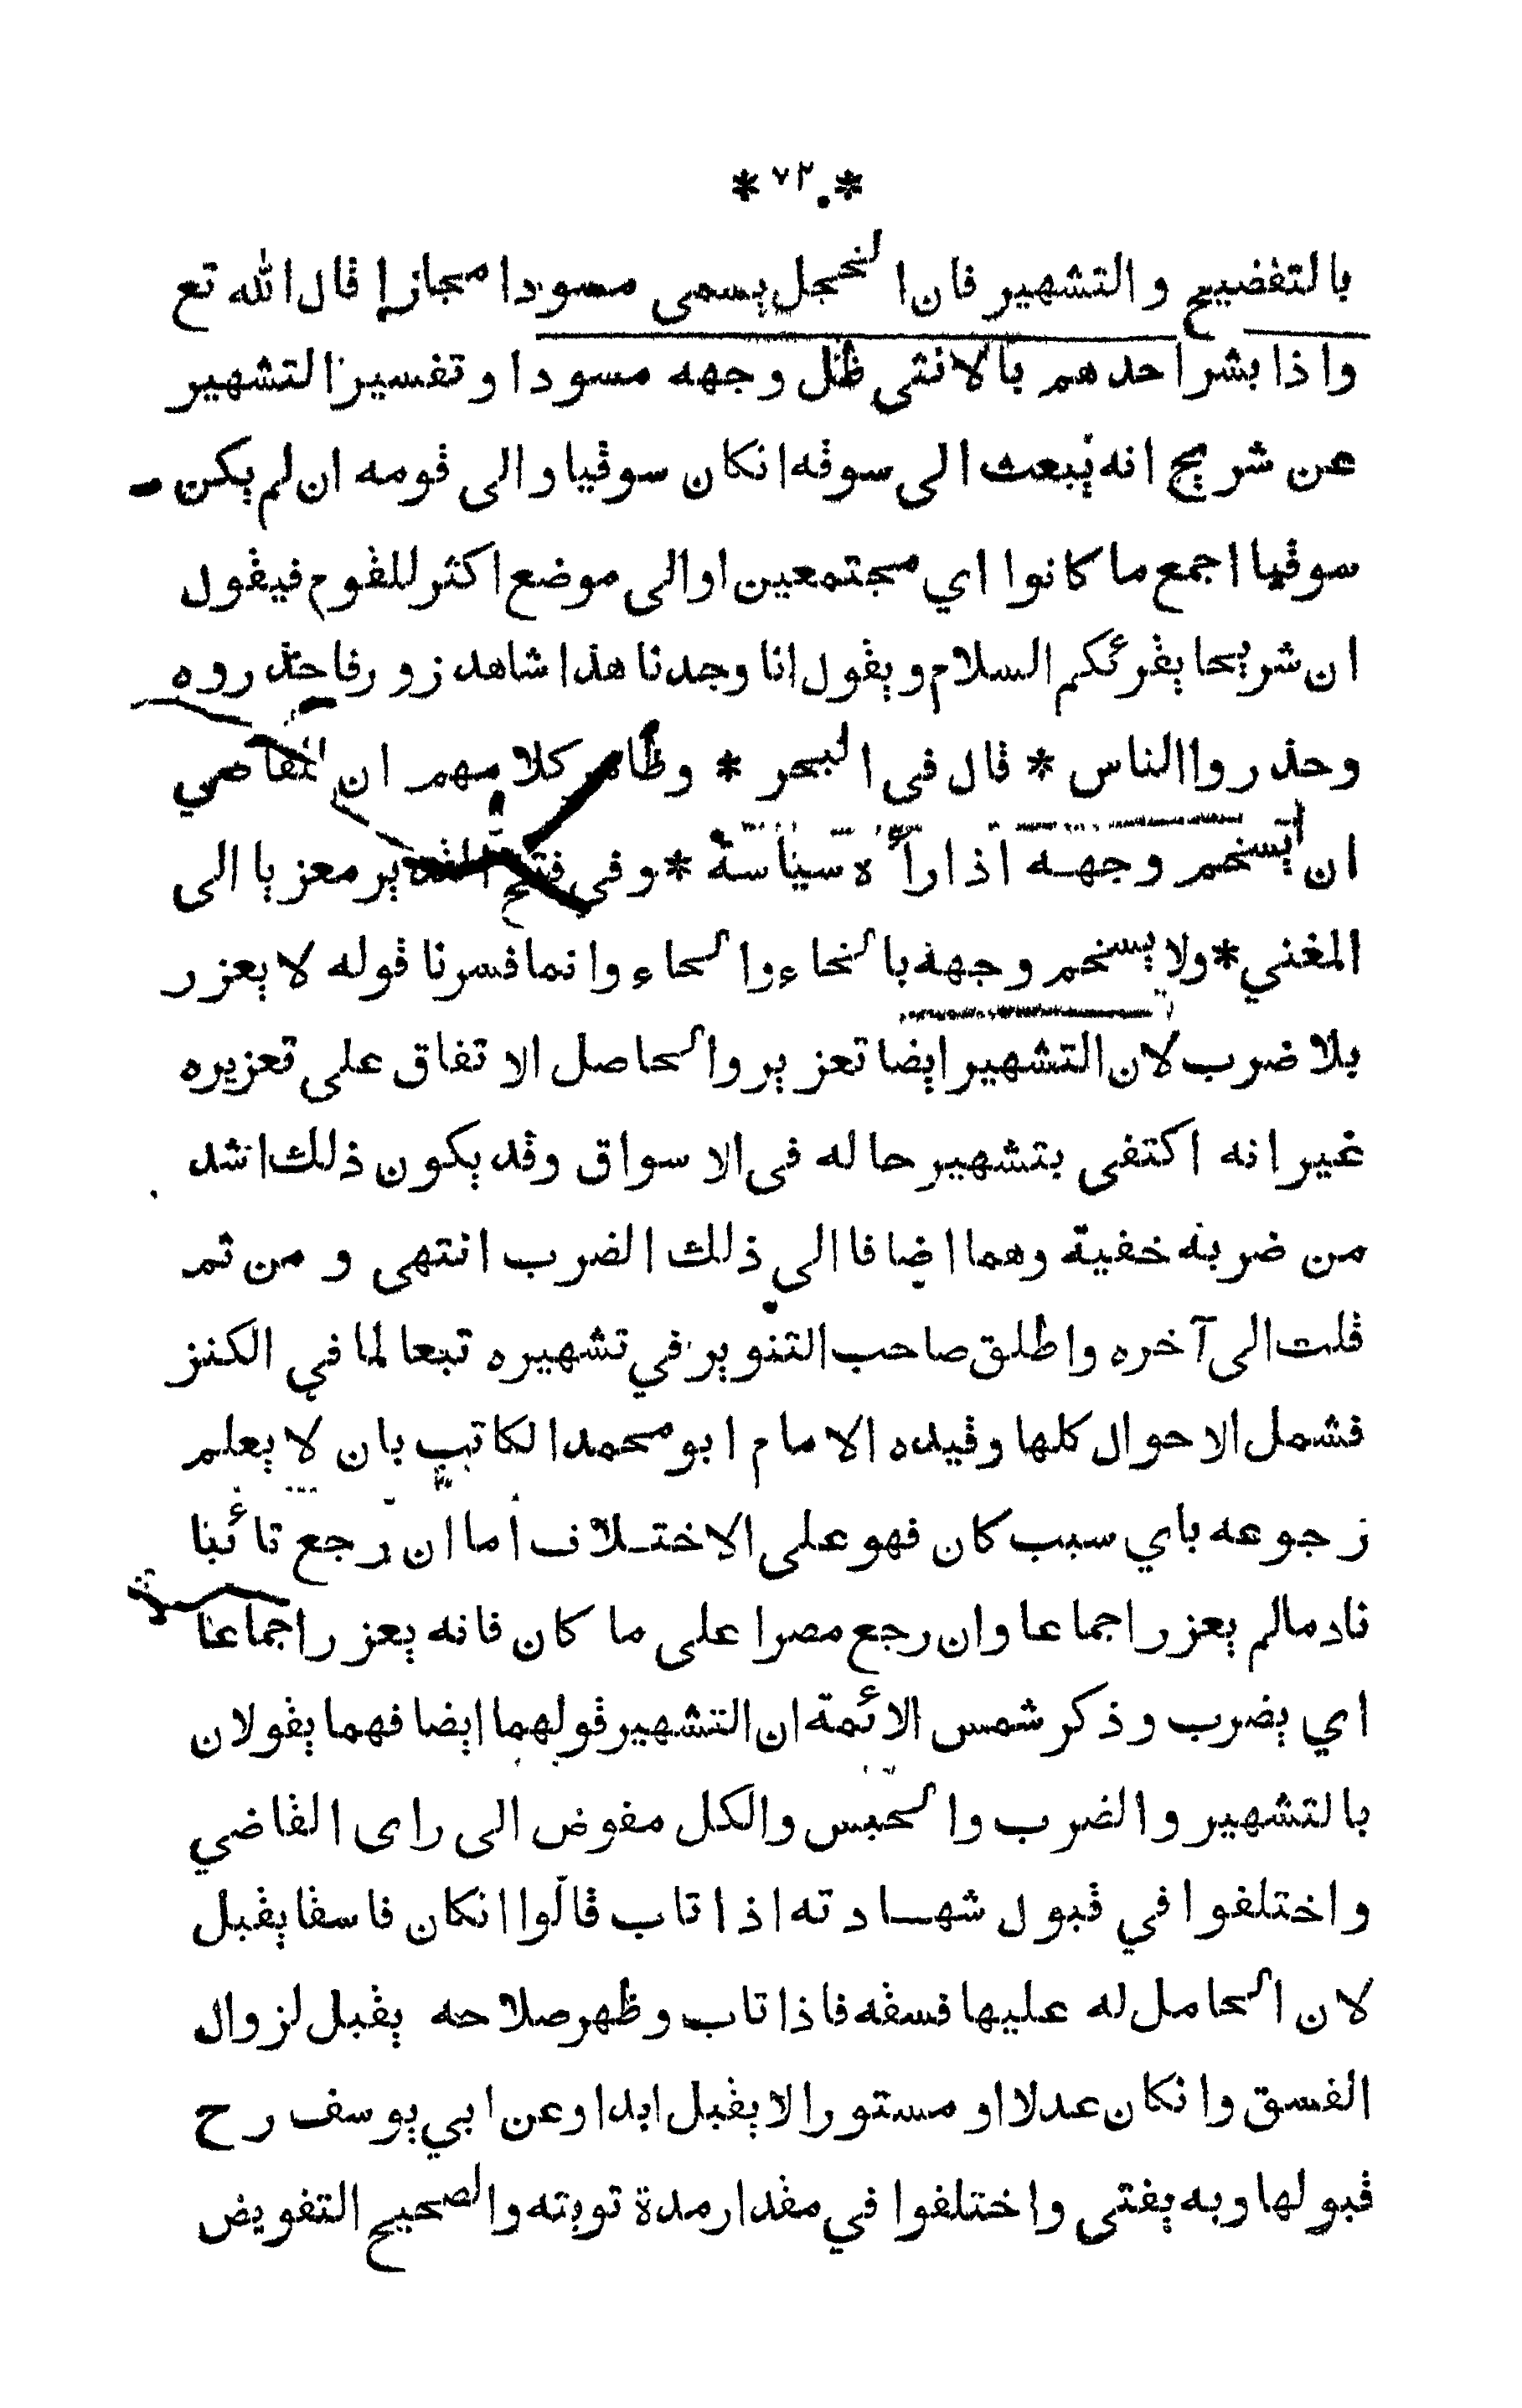 * ٧٢٠ *
بالتفضيح والتشهير فان الخجل يسمى مسودا مجازا قال الله تع
واذا بشر احدهم بالانثى ظل وجهه مسودا وتفسير التشهير
عن شريح انه يبعث الى سوقه انكان سوقيا والى قومه ان لم يكن
سوقيا اجمع ما كانوا اي مجتمعين او الى موضع اكثر للقوم فيقول
ان شريحا يقرئكم السلام ويقول انا وجدنا هذا شاهد زور فاحذروه
وحذروا الناس * قال في البحر * وظاهر كلامهم ان للقاضي
ان يسخم وجهه اذا رأه سياسة * وفي فتح القدير معزيا الى
المغني * ولا يسخم وجهه بالخاء والحاء وانما فسرنا قوله لا يعزر
بلا ضرب لان التشهير ايضا تعزير والحاصل الاتفاق على تعزيره
غير انه اكتفى بتشهير حاله في الاسواق وقد يكون ذلك اشد
من ضربه خفية وهما اضافا الى ذلك الضرب انتهى ومن ثم
قلت الى آخره واطلق صاحب التنوير في تشهيره تبعا لما في الكنز
فشمل الاحوال كلها وقيده الامام ابو محمد الكاتب بان لا يعلم
رجوعه باي سبب كان فهو على الاختلاف اما ان رجع تائبا
نادما لم يعزر اجماعا وان رجع مصرا على ما كان فانه يعزر اجماعا
اي يضرب وذكر شمس الائمة ان التشهير قولهما ايضا فهما يقولان
بالتشهير والضرب والحبس والكل مفوض الى راى القاضي
واختلفوا في قبول شهادته اذا تاب قالوا انكان فاسقا يقبل
لان الحامل له عليها فسقه فاذا تاب وظهر صلاحه يقبل لزوال
الفسق وانكان عدلا او مستورا لا يقبل ابدا وعن ابي يوسف رح
قبولها وبه يفتى واختلفوا في مقدار مدة توبته والصحيح التفويض